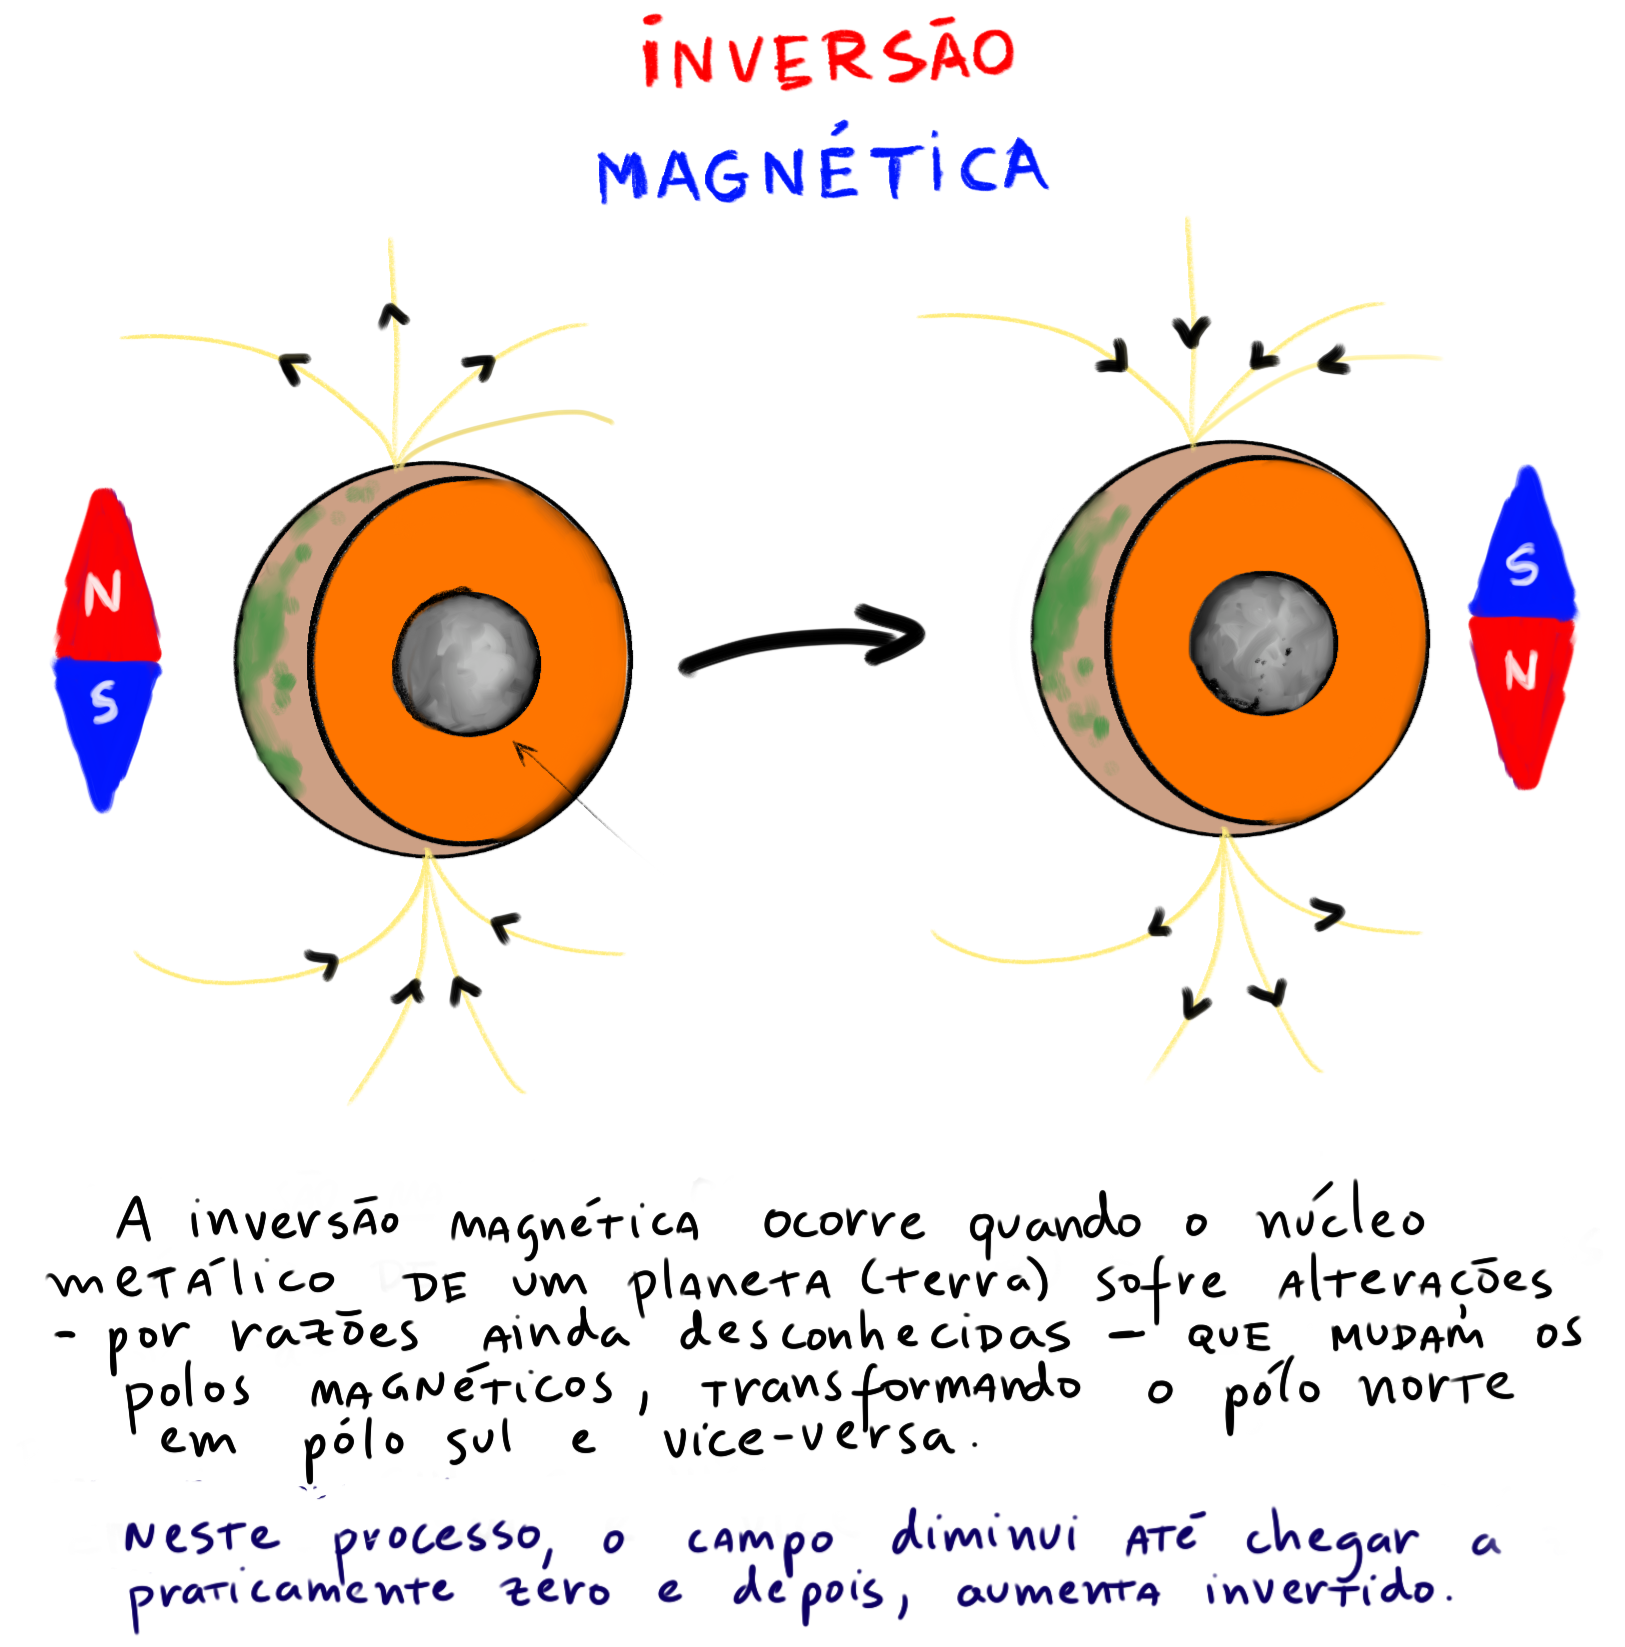 INVERSÃO
MAGNÉTICA
N
S
S
N
A inversão magnética ocorre quando o núcleo
metálico DE um planeta (terra) sofre alterações
- por razões ainda desconhecidas - QUE MUDAM OS
polos MAGNÉTICOS, transformando o pólo norte
em pólo sul e vice-versa.
Neste processo, o campo diminui ATÉ chegar a
praticamente zéro e depois, aumenta invertido.